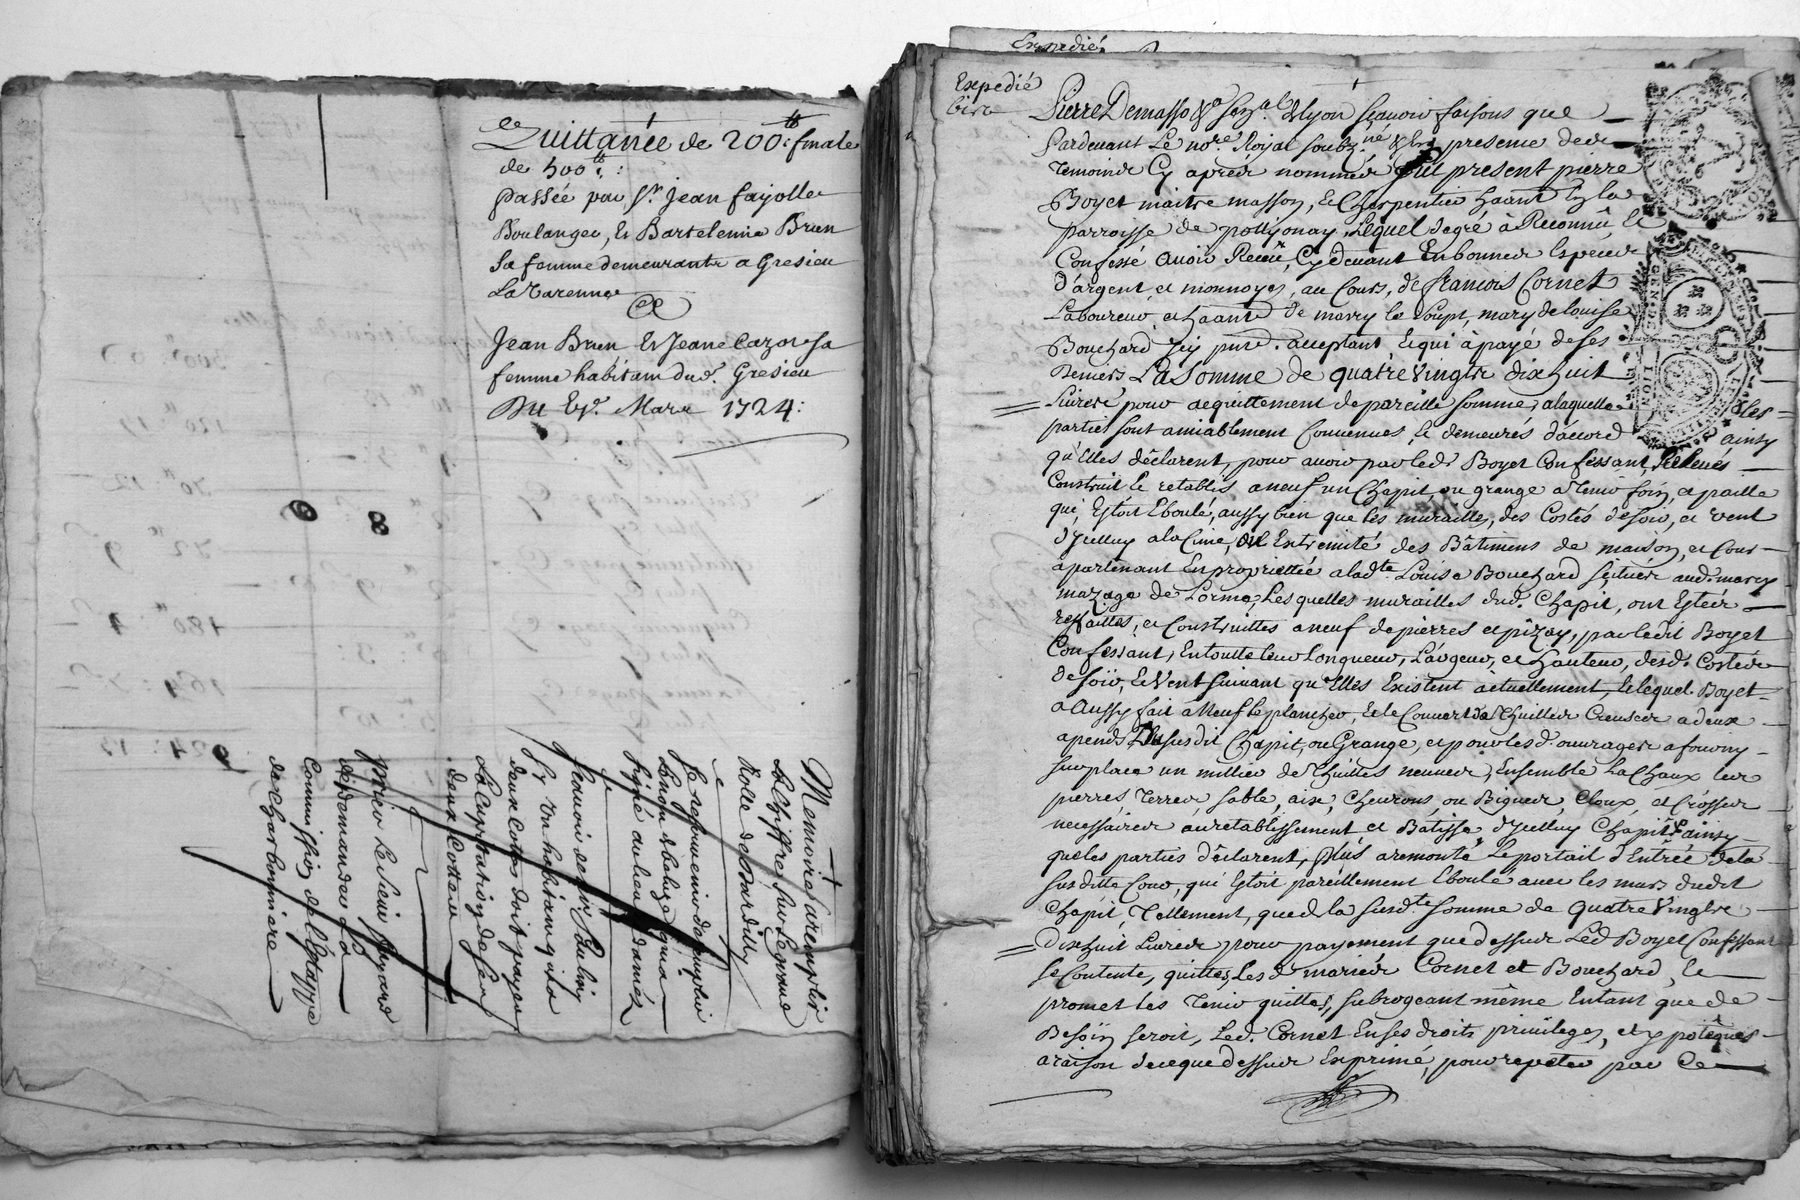 Quittance de 200tt finale
de 500tt:
passée par Sr. Jean fayolle
Boulanger, Et Bartelemie Brun
sa femme demeurants a Gresieu
La Varenne
a
Jean Brun Et Jeane Cazot sa
femme habitans dud. Gresieu
Du Mars 1724:
8 9
Memoire a remplir
Le chiffre sur Le grane
Rolle de Dardilly
Se souvenir de
signé au lieu damés
scavoir
sy un habitant qui a
deux cottes doit payer
La Capitation de Ses
deux cottes
prier Le sieur
de demander La
Commission de
de Charbonniere
Expedié
Expedié
Pierre Demasso &a Senal. de Lyon sçavoir faisons que
Pardevant Le nore. Royal soubzné. & En presence des
temoins Cy aprés nommés fut present pierre
Boyet maitre masson, & Charpentier haant En la
parroisse de pollyonay, Lequel degré à Reconnû, &
Confessé avoir Receu, Cydevant En bonnes Especes
d'argent, et monnoyes, au Cours, de francois Cornet
Laboureur et haant de marcy le Loupt, mary de louise
Bouchard icy pnt. acceptant Et qui à payé de ses
deniers La Somme de quatre vingts dix huit
Livres pour acquittement de pareille somme, a laquelle les
parties sont amiablement Convenues, & demeurés d'accord ainsy
qu'Elles déclarent, pour avoir par led. Boyet Confessant, Relevés
Construit & retablis a neuf un Chapit, ou grange a tenir foin, et paille
qui Estoit Eboulé, aussy bien que les murailles, des Costés de soir, et vent
d'Jcelluy a la Cime, ou Extremité des Bâtimens de maison, et Cour
apartenant En propriettée a ladte. Louise Bouchard scituées aud. marcy
mazage de Lorme, Lesquelles murailles dud. Chapit, ont Estées
reffaittes, et Construittes a neuf de pierres et pizay, par ledit Boyet
Confessant, En toutte leur Longueur, Largeur, et hauteur, desd. Costés
de soir, & Vent suivant qu'Elles Existent actuellement, & lequel Boyet
a Aussy fait a Neuf le plancher, & le Couvert de Thuilles Creuses a deux
apends Du susdit Chapit, ou Grange, et pour lesd. ouvrages a fourny
sur place un millier de Thuilles neuves, Ensemble La Chaux les
pierres, terres, sable, aix, Chevrons, ou Bigues, Cloux, et Crosses
necessaires au retablissement et Batisse d'Jcelluy Chapit, ainsy
que les parties déclarent, plus a remonté Le portail d'Entrée de la
susditte Cour, qui Estoit pareillement Eboulé avec les murs dudit
Chapit, Tellement, que de la susdte somme de quatre Vingts
Dixhuit Livres pour payement que dessus Led Boyet Confessant
se Contente, quitte, Lesd. mariés Cornet et Bouchard, &
promet les tenir quittes, subrogeant même Entant que de
Besoin seroit, Led. Cornet En ses droits privileges, et ypotèques
a raison de ce que dessus Exprimé, pour repeter par Ce